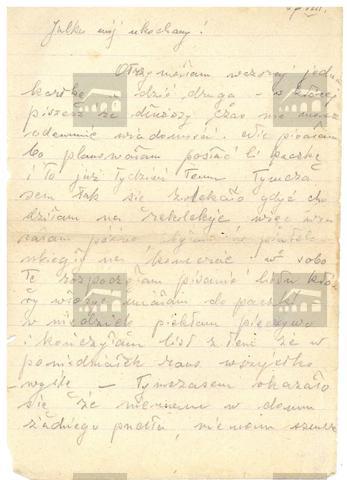 Julku mój ukochany!
Otrzymałam wczoraj jedną
kartkę a dziś drugą - w której
piszesz że dłuższy czas nie masz
odemnie wiadomości. Nie pisałam
bo planowałam posłać Ci paczkę
i to już tydzień temu. Tymcza
sem tak się zwlekało gdyż cho
dziłam na rekolekcje więc wra
całam późno
i w sobo
tę rozpoczęłam pisanie listu któ
ry włożyć miałam do paczki
w niedzielę piekłam pieczywo
i kończyłam list z tem że w
poniedziałek rano wszystko
wyślę - Tymczasem okazało
się że niemam w domu
żadnego pudła, niemam